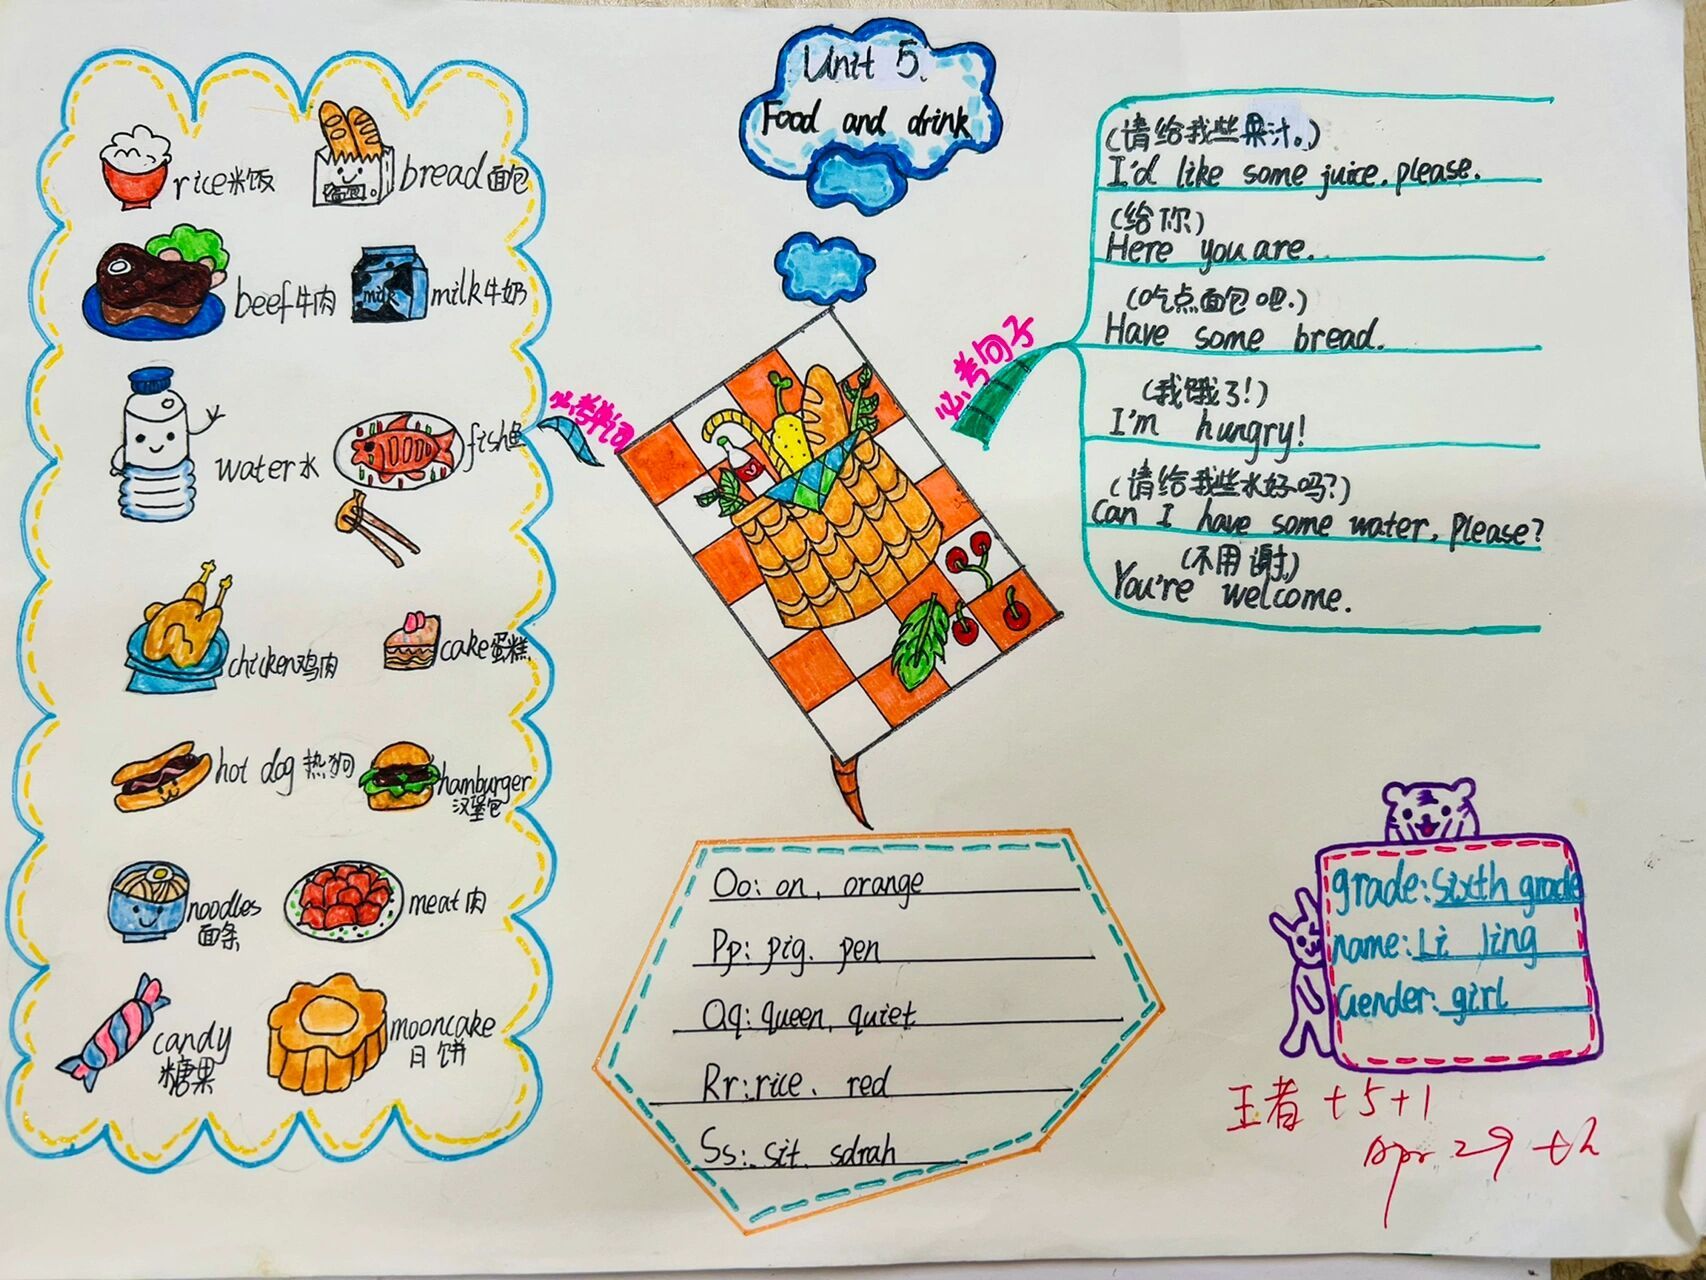 Unit 5.
Food and drink
rice米饭
bread面包
面包
beef牛肉
milk
milk牛奶
water水
fish鱼
chicken鸡肉
cake蛋糕
hot dog 热狗
hamburger
汉堡包
noodles
面条
meat肉
candy
糖果
mooncake
月饼
必考单词
必考句子
(请给我些果汁。)
I'd like some juice.please.
(给你)
Here you are.
(吃点面包吧.)
Have some bread.
(我饿了!)
I'm hungry!
(请给我些水好吗?)
Can I have some water, please?
(不用谢)
You're welcome.
Oo: on, orange
Pp: pig. pen
Qq: queen, quiet
Rr: rice. red
Ss: sit. sdrah
grade: sixth grade
name: Li Jing
Gender: girl
王者 +5+1
Apr 29 th